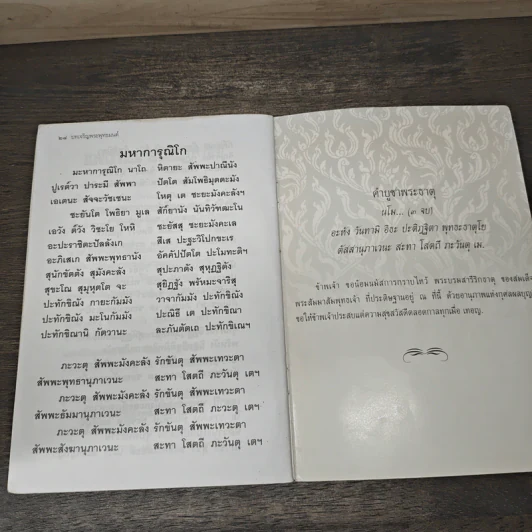 ๒๘ บทเจริญพระพุทธมนต์
มหาการุณิโก
มะหาการุณิโก นาโถ หิตายะ สัพพะปาณินัง
ปูเรต์วา ปาระมี สัพพา ปัตโต สัมโพธิมุตตะมัง
เอเตนะ สัจจะวัชเชนะ โหตุ เต ชะยะมังคะลังฯ
ชะยันโต โพธิยา มูเล สักยานัง นันทิวัฑฒะโน
เอวัง ต์วัง วิชะโย โหหิ ชะยัสสุ ชะยะมังคะเล
อะปะราชิตะปัลลังเก สีเส ปะฐะวิโปกขะเร
อะภิเสเก สัพพะพุทธานัง อัคคัปปัตโต ปะโมทะติฯ
สุนักขัตตัง สุมังคะลัง สุปะภาตัง สุหุฏฐิตัง
สุขะโณ สุมุหุตโต จะ สุยิฏฐัง พรัหมะจาริสุ
ปะทักขิณัง กายะกัมมัง วาจากัมมัง ปะทักขิณัง
ปะทักขิณัง มะโนกัมมัง ปะณิธี เต ปะทักขิณา
ปะทักขิณานิ กัตวานะ ละภันตัตเถ ปะทักขิเณฯ
ภะวะตุ สัพพะมังคะลัง รักขันตุ สัพพะเทวะตา
สัพพะพุทธานุภาเวนะ สะทา โสตถี ภะวันตุ เตฯ
ภะวะตุ สัพพะมังคะลัง รักขันตุ สัพพะเทวะตา
สัพพะธัมมานุภาเวนะ สะทา โสตถี ภะวะตุ เตฯ
ภะวะตุ สัพพะมังคะลัง รักขันตุ สัพพะเทวะตา
สัพพะสังฆานุภาเวนะ สะทา โสตถี ภะวันตุ เตฯ
คำบูชาพระธาตุ
นโม... (๓ จบ)
อะหัง วันทามิ อิธะ ปะติฏฐิตา พุทธะธาตุโย
ตัสสานุภาเวนะ สะทา โสตถี ภะวันตุ เม.
ข้าพเจ้า ขอน้อมนมัสการกราบไหว้ พระบรมสารีริกธาตุ ของสมเด็จ
พระสัมมาสัมพุทธเจ้า ที่ประดิษฐานอยู่ ณ ที่นี้ ด้วยอานุภาพแห่งกุศลผลบุญ
ขอให้ข้าพเจ้าประสบแต่ความสุขสวัสดีตลอดกาลทุกเมื่อ เทอญ.